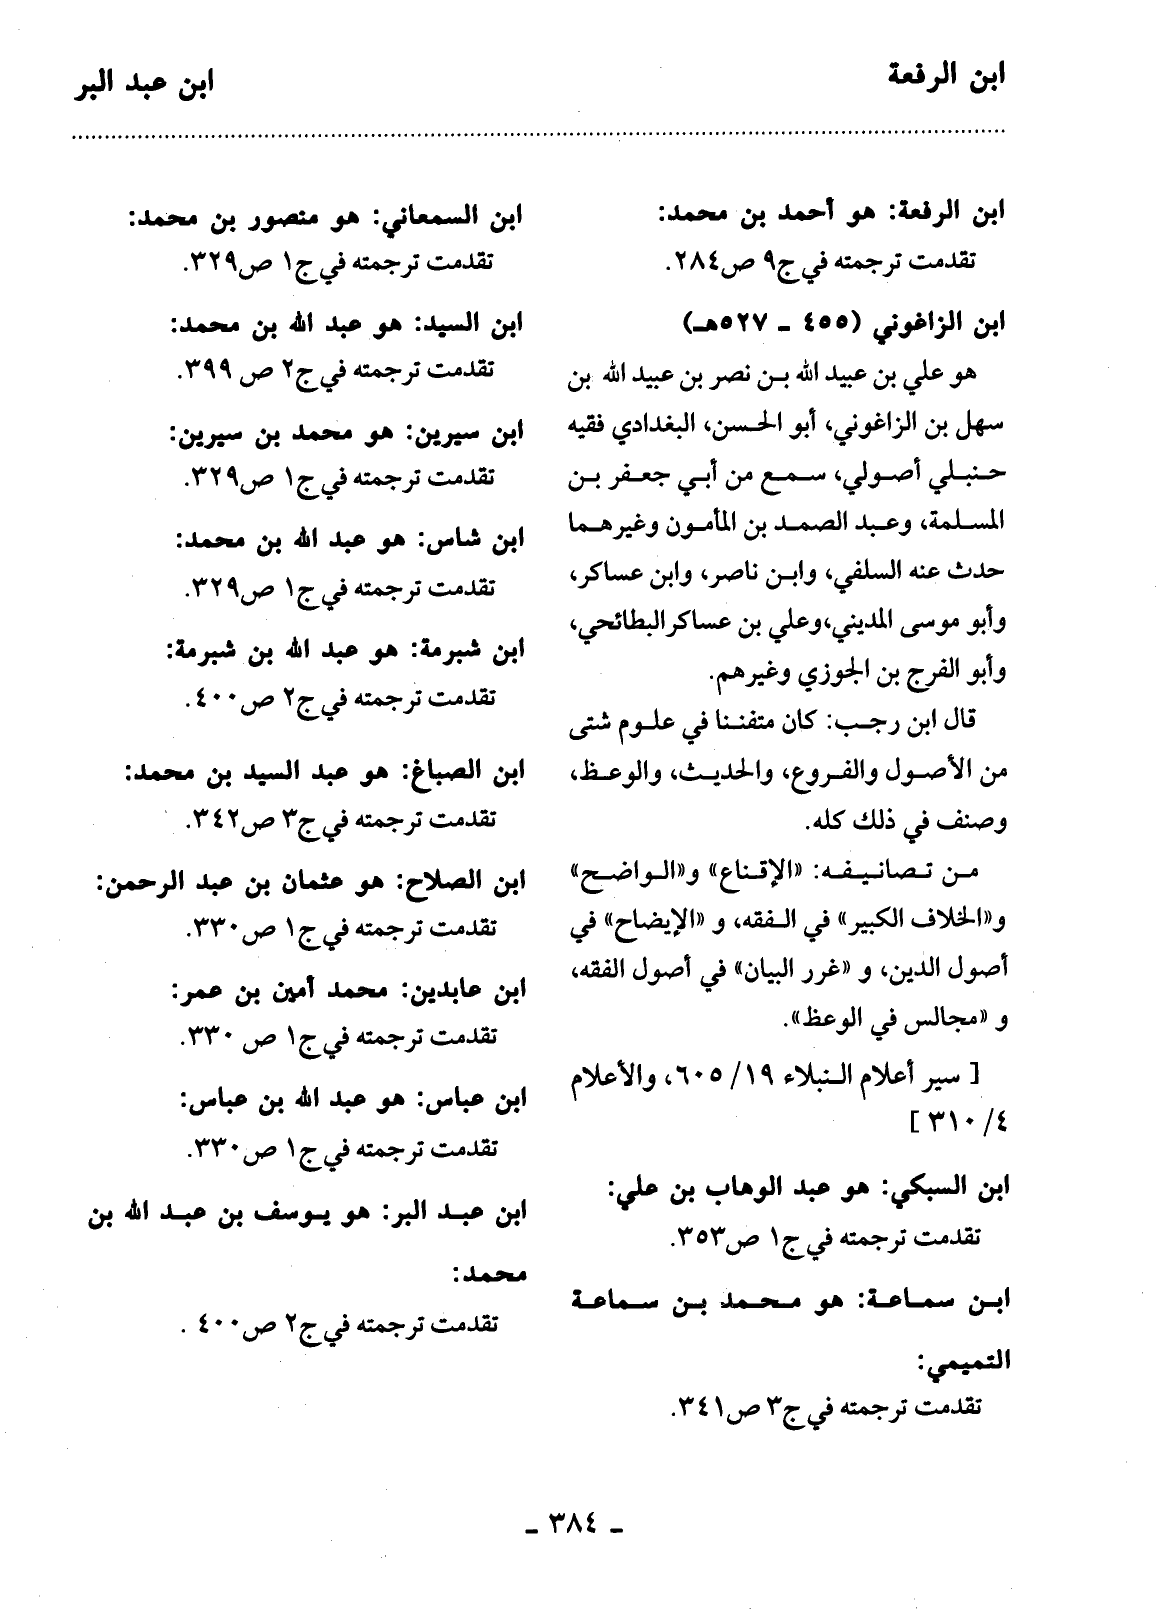 ابن الرفعة
ابن عبد البر
ابن الرفعة: هو أحمد بن محمد:
تقدمت ترجمته في ج٩ ص٢٨٤.
ابن الزاغوني (٤٥٥ - ٥٢٧هـ)
هو علي بن عبيد الله بن نصر بن عبيد الله بن
سهل بن الزاغوني، أبو الحسن، البغدادي فقيه
حنبلي أصولي، سمع من أبي جعفر بن
المسلمة، وعبد الصمد بن المأمون وغيرهما
حدث عنه السلفي، وابن ناصر، وابن عساكر،
وأبو موسى المديني،وعلي بن عساكرالبطائحي،
وأبو الفرج بن الجوزي وغيرهم.
قال ابن رجب: كان متفننا في علوم شتى
من الأصول والفروع، والحديث، والوعظ،
وصنف في ذلك كله.
من تصانيفه: «الإقناع» و«الواضح»
و«الخلاف الكبير» في الفقه، و «الإيضاح» في
أصول الدين، و «غرر البيان» في أصول الفقه،
و «مجالس في الوعظ».
[ سير أعلام النبلاء ١٩/ ٦٠٥، والأعلام
٤/ ٣١٠ ]
ابن السبكي: هو عبد الوهاب بن علي:
تقدمت ترجمته في ج١ ص٣٥٣.
ابن سماعة: هو محمد بن سماعة
التميمي:
تقدمت ترجمته في ج٣ ص٣٤١.
ابن السمعاني: هو منصور بن محمد:
تقدمت ترجمته في ج١ ص٣٢٩.
ابن السيد: هو عبد الله بن محمد:
تقدمت ترجمته في ج٢ ص ٣٩٩.
ابن سيرين: هو محمد بن سيرين:
تقدمت ترجمته في ج١ ص٣٢٩.
ابن شاس: هو عبد الله بن محمد:
تقدمت ترجمته في ج١ ص٣٢٩.
ابن شبرمة: هو عبد الله بن شبرمة:
تقدمت ترجمته في ج٢ ص٤٠٠.
ابن الصباغ: هو عبد السيد بن محمد:
تقدمت ترجمته في ج٣ ص٣٤٢.
ابن الصلاح: هو عثمان بن عبد الرحمن:
تقدمت ترجمته في ج١ ص٣٣٠.
ابن عابدين: محمد أمين بن عمر:
تقدمت ترجمته في ج١ ص ٣٣٠.
ابن عباس: هو عبد الله بن عباس:
تقدمت ترجمته في ج١ ص٣٣٠.
ابن عبد البر: هو يوسف بن عبد الله بن
محمد:
تقدمت ترجمته في ج٢ ص٤٠٠ .
- ٣٨٤ -